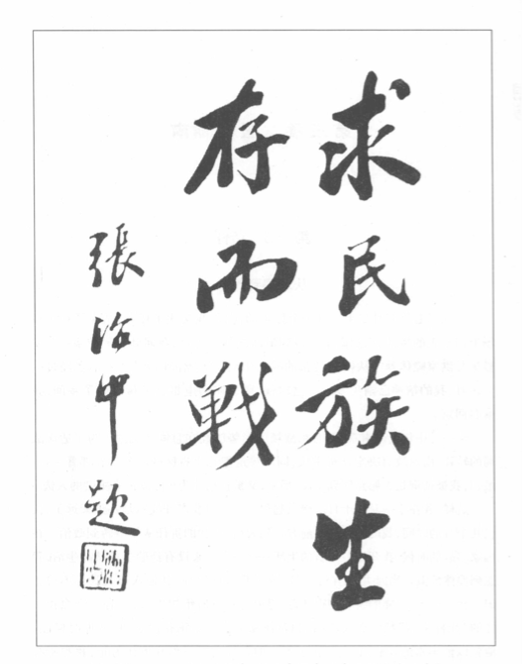 求民族生
存而戦
張治中題